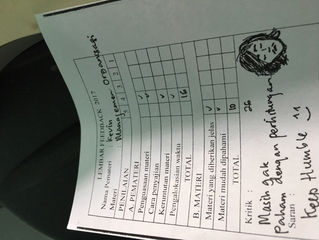 LEMBAR FEEDBACK 2017
Nama Pemateri : Kevin
Materi : Manajemen Organisasi
PENILAIAN 1 2 3 4 5
A. PEMATERI
Penguasaan materi ✓
Cara penyajian ✓
Keruntutan materi ✓
Pengalokasian waktu ✓
TOTAL 16
B. MATERI
Materi yang diberikan jelas ✓
Materi mudah dipahami ✓
TOTAL 10
TOTAL 26
Kritik :
Masih gak
Paham dengan perhitungan
Saran :
Keep Humble